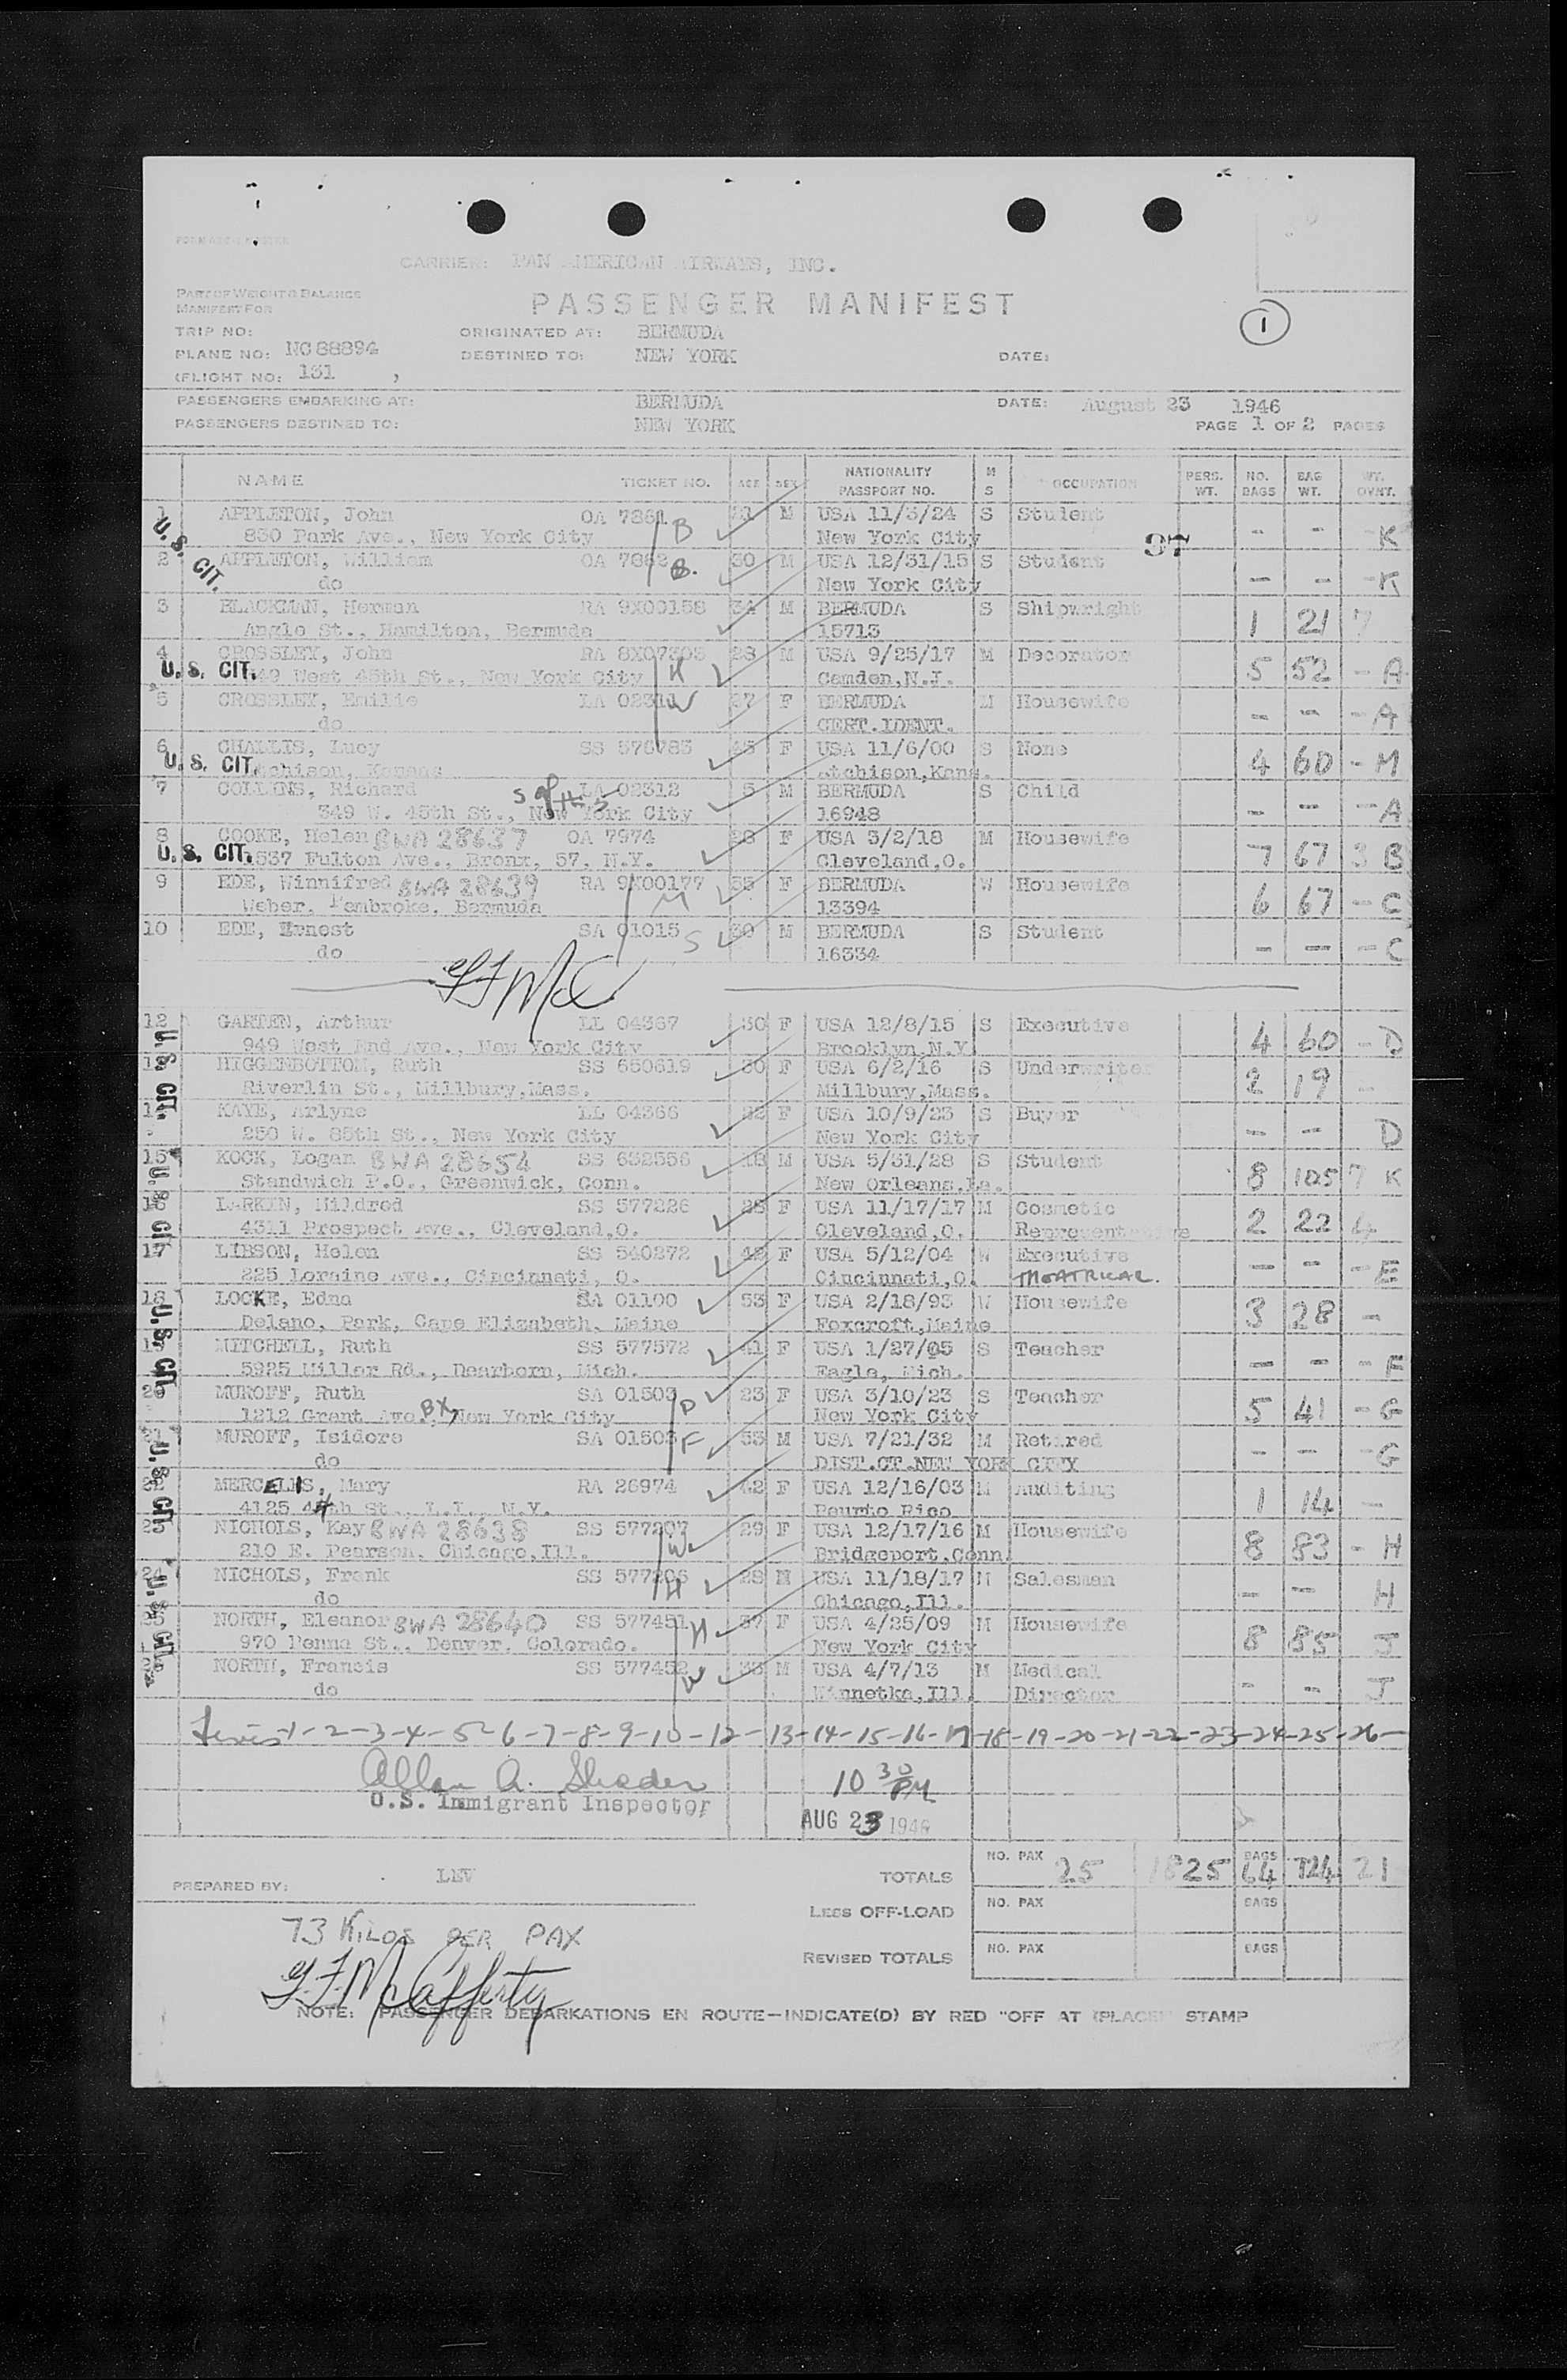 CARRIER: PAN AMERICAN AIRWAYS, INC.
PART OF WEIGHT & BALANCE
MANIFEST FOR
PASSENGER MANIFEST
1
TRIP NO:
ORIGINATED AT: BERMUDA
PLANE NO: NC 88894
DESTINED TO: NEW YORK
DATE:
(FLIGHT NO: 131 )
PASSENGERS EMBARKING AT: BERMUDA
DATE: August 23 1946
PASSENGERS DESTINED TO: NEW YORK
PAGE 1 OF 2 PAGES
NAME TICKET NO. AGE SEX NATIONALITY PASSPORT NO. M S OCCUPATION PERS. WT. NO. BAGS BAG WT. WT. OVWT.
1 APPLETON, John OA 7861 B 21 M USA 11/3/24 S Student - - K
U. S. CIT. 830 Park Ave., New York City New York City 97
2 APPLETON, William OA 7862 B. 30 M USA 12/31/15 S Student - - - K
do New York City
3 BLACKMAN, Herman RA 9X00158 34 M BERMUDA S Shipwright 1 21 7
Angle St., Hamilton, Bermuda 15713
4 CROSSLEY, John RA 8X07305 K 28 M USA 9/25/17 M Decorator 5 52 - A
U. S. CIT. 349 West 45th St., New York City Camden,N.J.
5 CROSSLEY, Emilie LA 02311 W 27 F BERMUDA M Housewife - - - A
do CERT.IDENT.
6 CHALLIS, Lucy SS 576783 45 F USA 11/6/00 S None 4 60 - M
U. S. CIT. Atchison, Kansas Atchison,Kans.
7 COLLINS, Richard LA 02312 5 M BERMUDA S Child - - - A
349 W. 45th St., New York City 16948
8 COOKE, Helen BWA 28637 OA 7974 28 F USA 5/2/18 M Housewife 7 67 3 B
U. S. CIT. 1537 Fulton Ave., Bronx, 57, N.Y. Cleveland,O.
9 EDE, Winnifred BWA 28639 RA 9X00177 M 55 F BERMUDA W Housewife 6 67 - C
Weber, Pembroke, Bermuda 13394
10 EDE, Ernest SA 01015 S 30 M BERMUDA S Student - - - C
do 16334
12 GARTEN, Arthur LL 04367 30 F USA 12/8/15 S Executive 4 60 - D
949 West End Ave., New York City Brooklyn,N.Y.
13 HIGGENBOTTOM, Ruth SS 650619 30 F USA 6/2/16 S Underwriter 2 19 -
U. S. CIT. Riverlin St., Millbury,Mass. Millbury,Mass.
14 KAYE, Arlyne LL 04366 22 F USA 10/9/23 S Buyer - - D
250 W. 85th St., New York City New York City
15 KOCK, Logan BWA 28654 SS 632556 18 M USA 5/31/28 S Student 8 105 7 K
Standwich P.O., Greenwick, Conn. New Orleans,La.
16 LARKIN, Mildred SS 577226 28 F USA 11/17/17 M Cosmetic 2 22 4
U. S. CIT. 4311 Prospect Ave., Cleveland,O. Cleveland,O. Representative
17 LIBSON, Helen SS 540272 42 F USA 5/12/04 W Executive - - - E
225 Loraine Ave., Cincinnati, O. Cincinnati,O. THEATRICAL.
18 LOCKE, Edna SA 01100 53 F USA 2/18/93 W Housewife 3 28 -
Delano, Park, Cape Elizabeth, Maine Foxcroft,Maine
19 MITCHELL, Ruth SS 577572 41 F USA 1/27/05 S Teacher - - - F
U. S. CIT. 5925 Miller Rd., Dearborn, Mich. Eagle, Mich.
20 MUROFF, Ruth SA 01503 P 23 F USA 3/10/23 S Teacher 5 41 - G
1212 Grant Ave., BX, New York City New York City
21 MUROFF, Isidore SA 01503 F 53 M USA 7/21/32 M Retired - - - G
do DIST.CT.NEW YORK CITY
22 MERCELIS, Mary RA 26974 42 F USA 12/16/03 M Auditing 1 14 -
U. S. CIT. 4125 44th St., L.I., N.Y. Peurto Rico
23 NICHOLS, Kay BWA 28638 SS 577207 W. 29 F USA 12/17/16 M Housewife 8 83 - H
210 E. Pearson, Chicago,Ill. Bridgeport,Conn.
24 NICHOLS, Frank SS 577206 H 28 M USA 11/18/17 M Salesman - - H
do Chicago,Ill.
25 NORTH, Eleanor BWA 28640 SS 577451 H 37 F USA 4/25/09 M Housewife 8 85 J
U. S. CIT. 970 Penna St., Denver, Colorado. New York City
26 NORTH, Francis SS 577452 W 33 M USA 4/7/13 M Medical - - J
do Winnetka,Ill. Director
1-2-3-4-5-6-7-8-9-10-12-13-14-15-16-17-18-19-20-21-22-23-24-25-26-
Allan A. Shader 10 30 PM
U.S. Immigrant Inspector AUG 23 1946
PREPARED BY: LEV
TOTALS NO. PAX 25 1825 BAGS 64 724 21
LESS OFF-LOAD NO. PAX BAGS
73 KILOS PER PAX
REVISED TOTALS NO. PAX BAGS
G.F. McCafferty
NOTE: PASSENGER DEBARKATIONS EN ROUTE—INDICATE(D) BY RED "OFF AT (PLACE)" STAMP